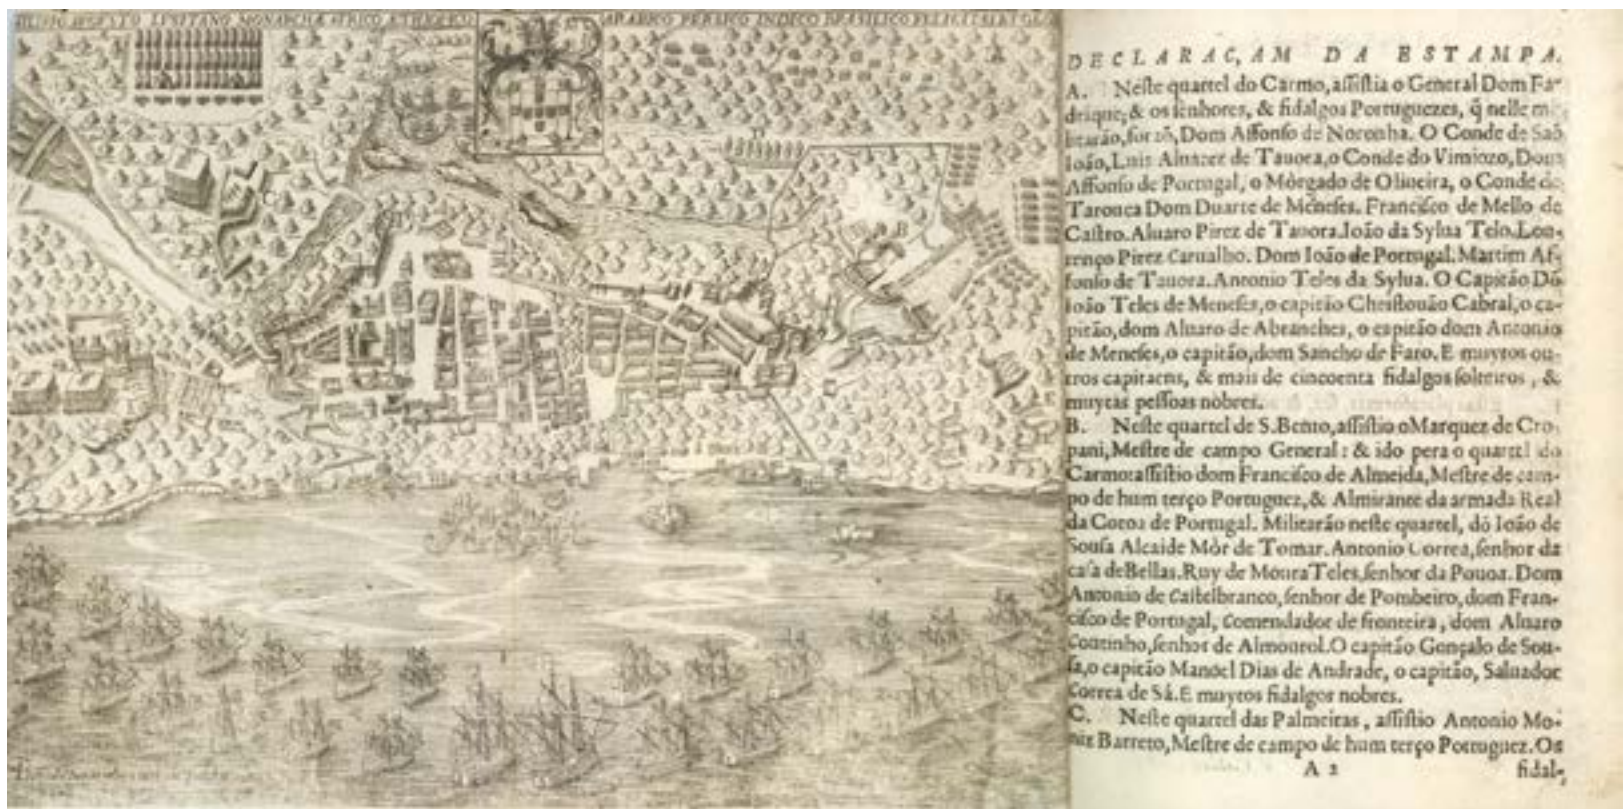 AVGVSTO LVSITANO MONARCHÆ AFRICO ÆTHIOPICO ARABICO PERSICO INDICO BRASILICO FELICITAS
DECLARAC,AM DA ESTAMPA.
A. Neſte quartel do Carmo, aſſiſtia o General Dom Fa-
drique; & os ſenhores, & fidalgos Portuguezes, q̃ nelle
Dom Affonſo de Noronha. O Conde de Saõ
Ioão, Luis Aluarez de Tauora, o Conde do Vimiozo, Dom
Affonſo de Portugal, o Mòrgado de Oliueira, o Conde de
Tarouca Dom Duarte de Meneſes. Franciſco de Mello de
Caſtro. Aluaro Pirez de Tauora. Ioão da Sylua Telo. Lou-
renço Pirez Carualho. Dom Ioão de Portugal. Martim Af-
fonſo de Tauora. Antonio Teles da Sylua. O Capitão Dõ
Ioão Teles de Meneſes, o capitão Chriſtouão Cabral, o ca-
pitão, dom Aluaro de Abranches, o capitão dom Antonio
de Meneſes, o capitão, dom Sancho de Faro. E muytos ou-
tros capitaens, & mais de cincoenta fidalgos ſolteiros, &
muytas peſſoas nobres.
B. Neſte quartel de S. Bento, aſſiſtio o Marquez de Cro-
pani, Meſtre de campo General: & ido pera o quartel do
Carmo: aſſiſtio dom Franciſco de Almeida, Meſtre de cam-
po de hum terço Portuguez, & Almirante da armada Real
da Coroa de Portugal. Militarão neſte quartel, dõ Ioão de
Souſa Alcaide Mòr de Tomar. Antonio Correa, ſenhor da
caſa de Bellas. Ruy de Moura Teles, ſenhor da Pouoa. Dom
Antonio de Caſtelbranco, ſenhor de Pombeiro, dom Fran-
ciſco de Portugal, Comendador de fronteira, dom Aluaro
Coutinho, ſenhor de Almourol. O capitão Gonçalo de Sou-
ſa, o capitão Manoel Dias de Andrade, o capitão, Saluador
Correa de Sá. E muytos fidalgos nobres.
C. Neſte quartel das Palmeiras, aſſiſtio Antonio Mo-
niz Barreto, Meſtre de campo de hum terço Portuguez. Os
A 2 fidal-
A
D
C
B
E